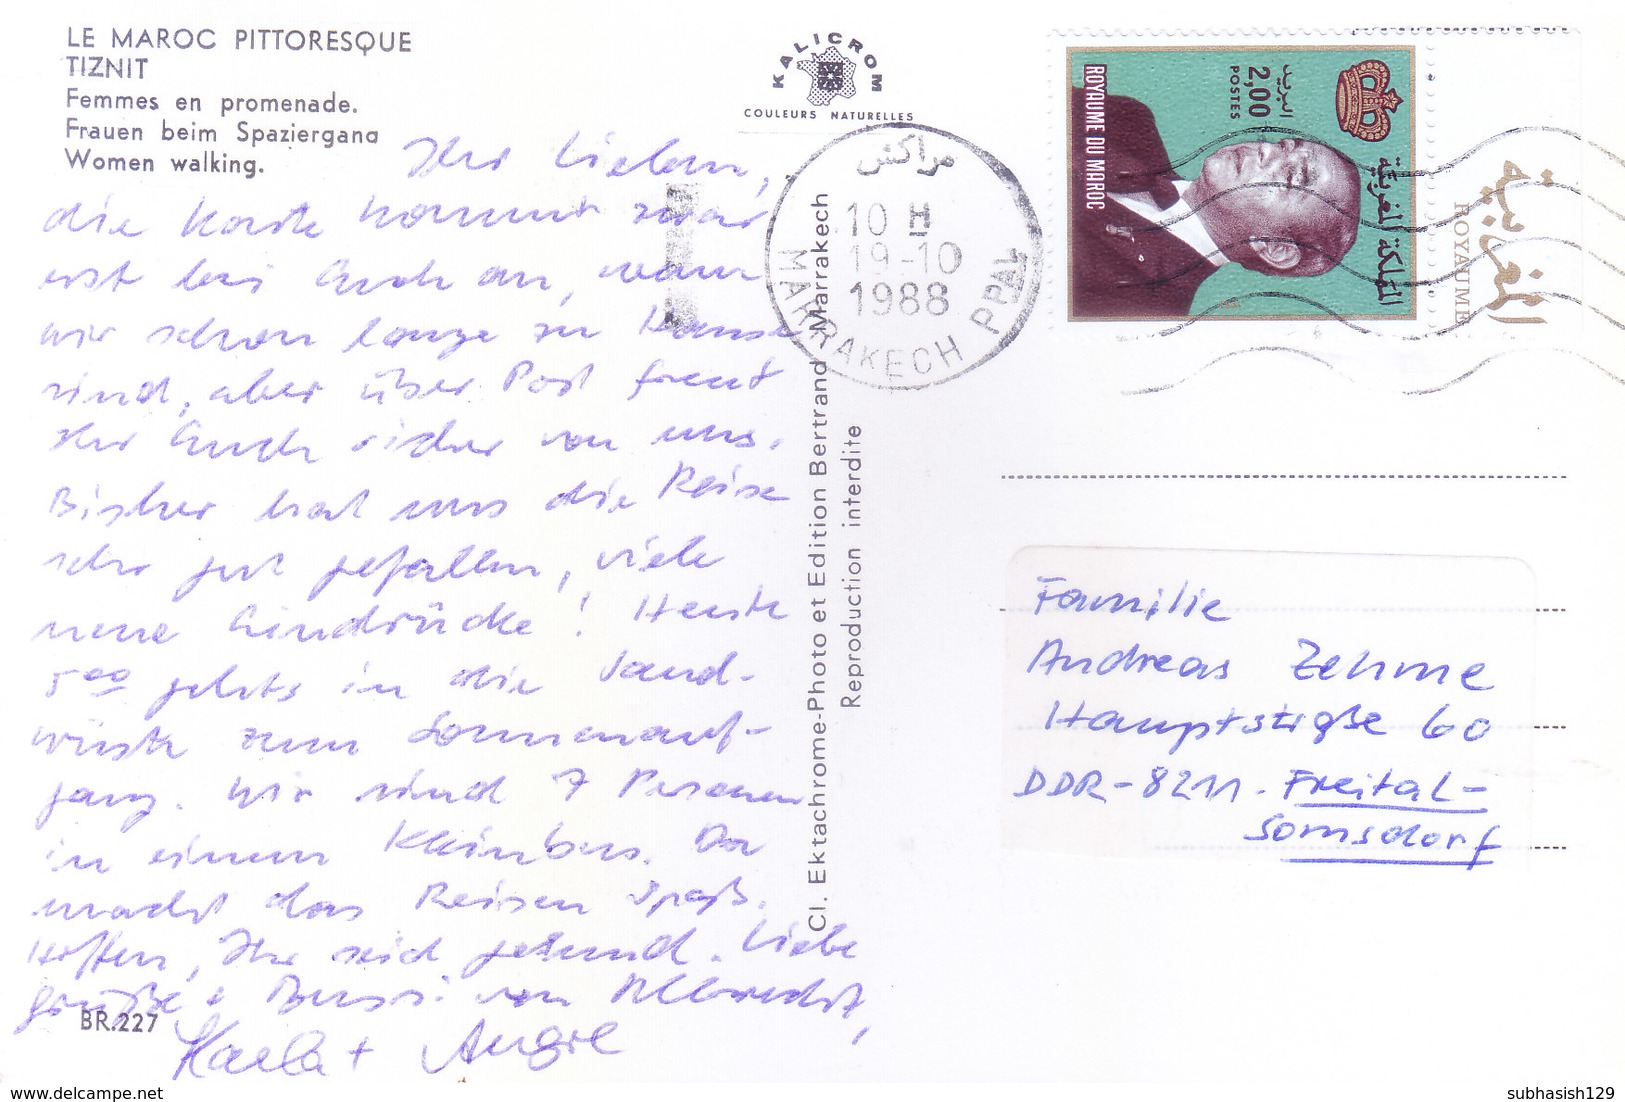 LE MAROC PITTORESQUE
TIZNIT
Femmes en promenade.
Frauen beim Spaziergang
Women walking.
KALICROM
COULEURS NATURELLES
Ihr Lieben,
die Karte kommt zwar
erst bei Euch an, wenn
wir schon lange zu Hause
sind, aber über Post freut
Ihr Euch sicher von uns.
Bisher hat uns die Reise
sehr gut gefallen, viele
neue Eindrücke! Heute
5 00 gehts in die Sand-
wüste zum Sonnenauf-
gang. Wir sind 7 Personen
in einem Kleinbus. Da
macht das Reisen Spaß.
Hoffen, Ihr seid gesund. Liebe
Grüße + Bussi von Albrecht,
Karla +
BR.227
Cl. Ektachrome-Photo et Edition Bertrand - Marrakech
Reproduction interdite
مراكش
10 H
19-10
1988
MARRAKECH PPAL
ROYAUME DU MAROC
البريد
2,00
POSTES
المملكة المغربية
المغربية
ROYAUME
Familie
Andreas Zehme
Hauptstraße 60
DDR-8211. Freital-
Somsdorf
subhasish129